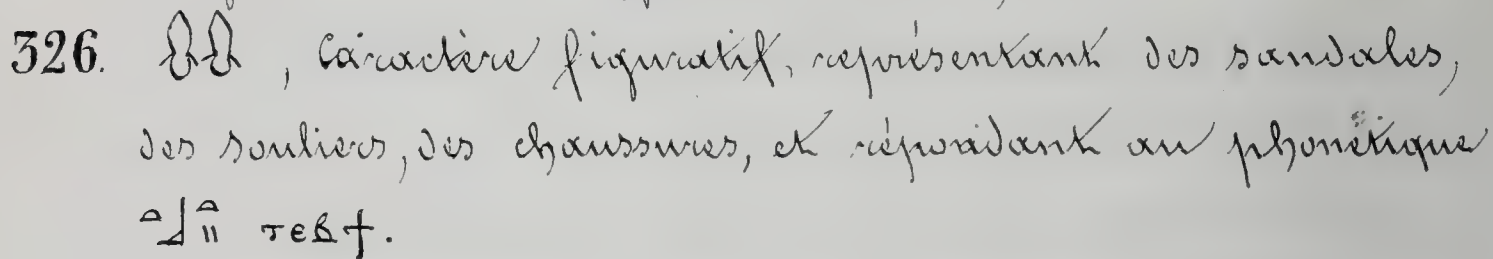 326. 𓋸𓋸, Caractère figuratif, représentant des sandales,
des souliers, des chaussures, et répondant au phonétique
𓏏𓃀𓏏𓏭 ⲧⲉⲃϯ.